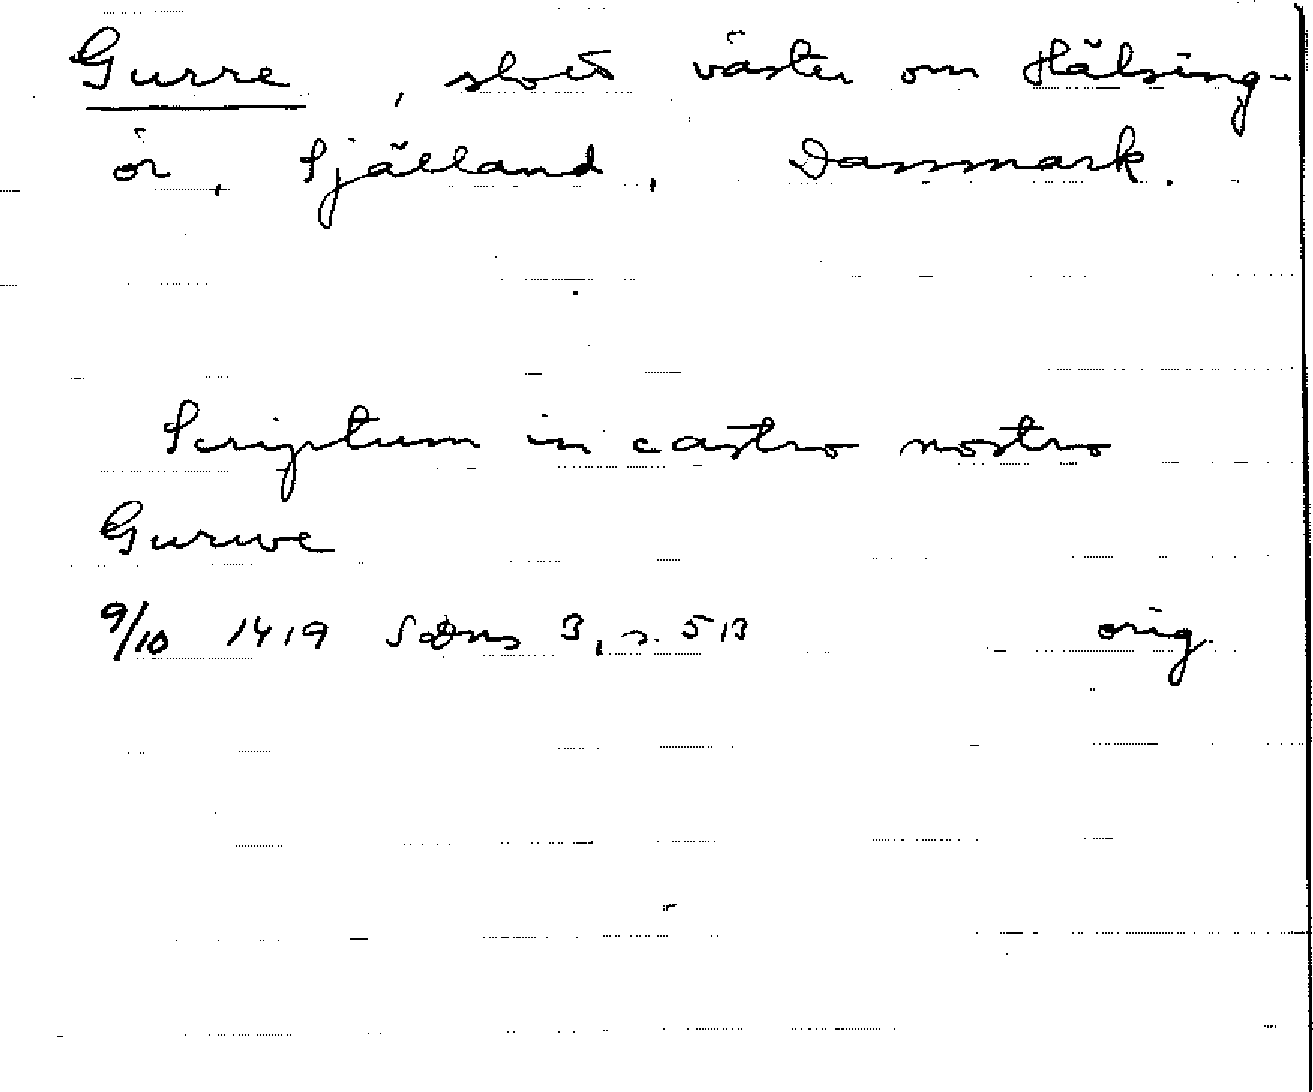 Gurre, slott väster om Hälsing-
ör, Själland, Danmark.
Scriptum in castro nostro
Gurwe
9/10 1419 SDns 3, s. 513 orig.